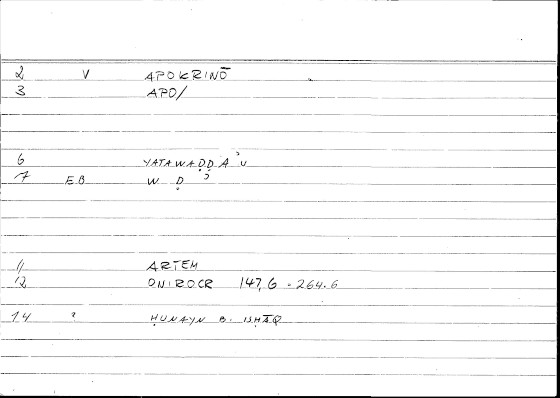 2 V APOKRINŌ
3 APO/
6 YATAWAḌḌAʾU
7 EB W Ḍ ʾ
11 ARTEM
12 ONIROCR 147,6 - 264.6
14 " ḤUNAYN B. ISḤĀQ